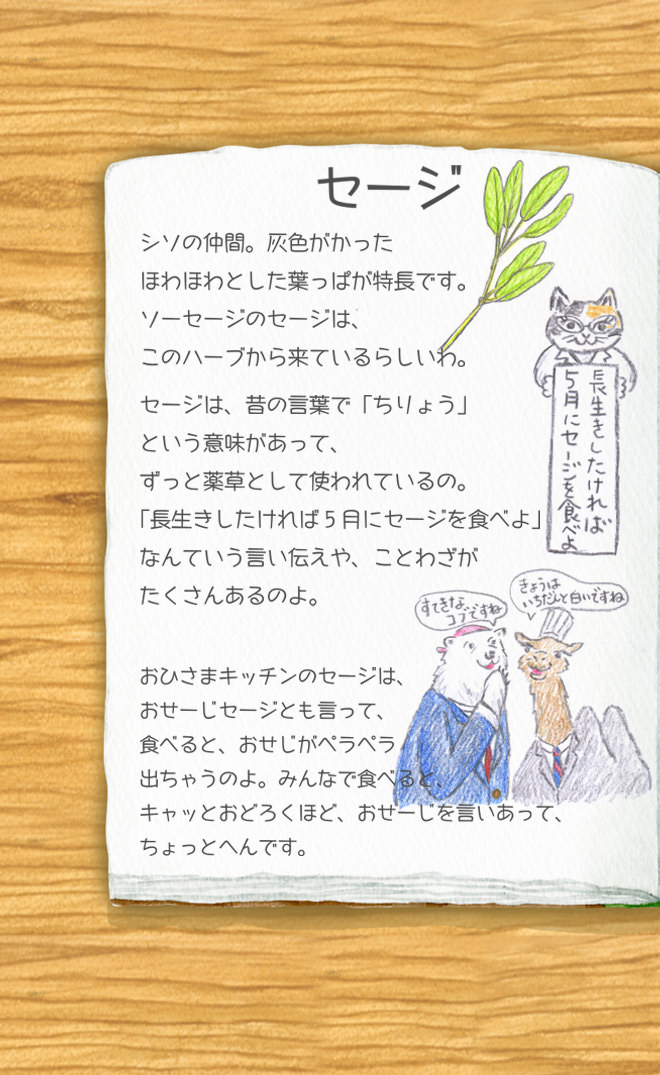 セージ
シソの仲間。灰色がかった
ほわほわとした葉っぱが特長です。
ソーセージのセージは、
このハーブから来ているらしいわ。
セージは、昔の言葉で「ちりょう」
という意味があって、
ずっと薬草として使われているの。
「長生きしたければ５月にセージを食べよ」
なんていう言い伝えや、ことわざが
たくさんあるのよ。
長生きしたければ
５月にセージを食べよ
すてきな
コブですね
きょうは
いちだんと白いですね
おひさまキッチンのセージは、
おせーじセージとも言って、
食べると、おせじがペラペラ
出ちゃうのよ。みんなで食べると、
キャッとおどろくほど、おせーじを言いあって、
ちょっとへんです。